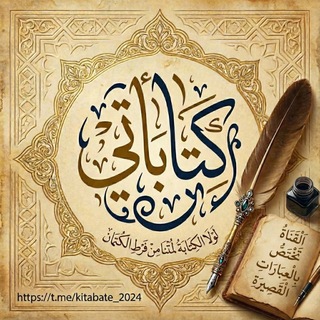 كِتَابَاتِي
لَوْلَا الكِتَابَةُ لَمُتْنَا مِنْ فَرْطِ الكِتْمَانِ
القَنَاةُ
تَخْتَصُّ
بِالعِبَارَاتِ
القَصِيرَةِ
https://t.me/kitabate_2024